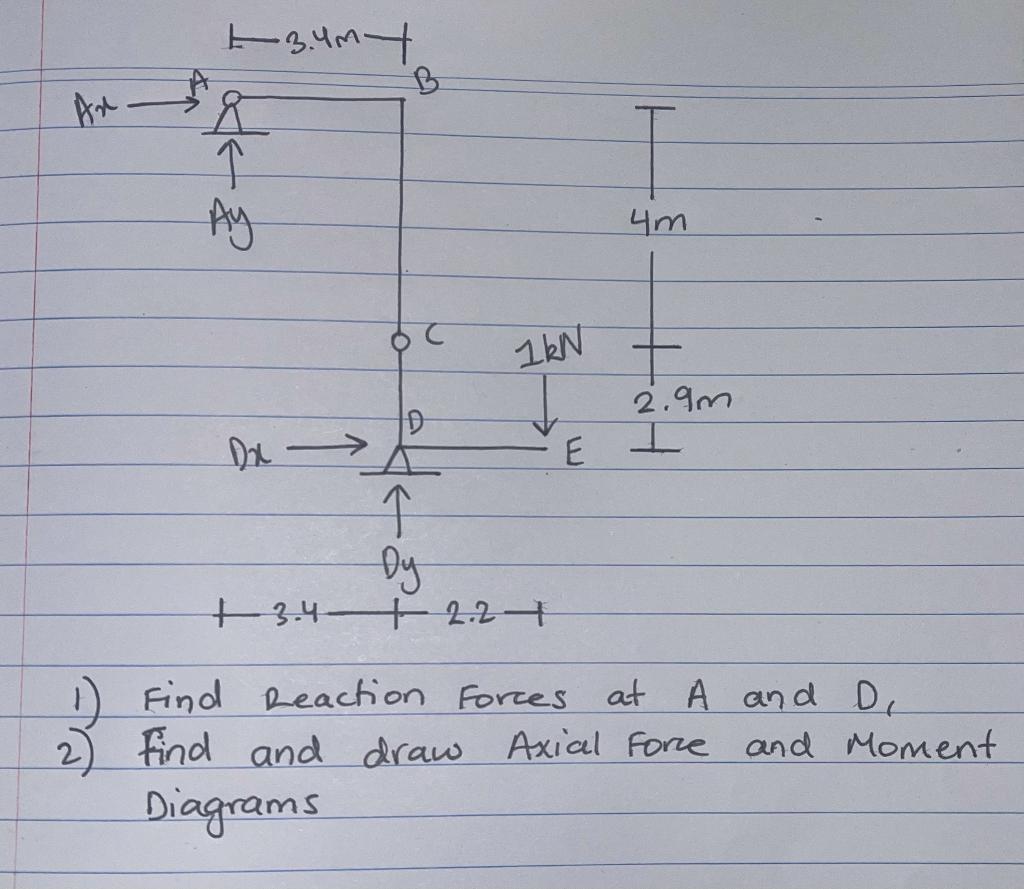 3.4m
A
B
Ax
Ay
4m
C
1kN
2.9m
D
Dx
E
Dy
3.4
2.2
1) Find Reaction Forces at A and D,
2) Find and draw Axial Force and Moment
Diagrams